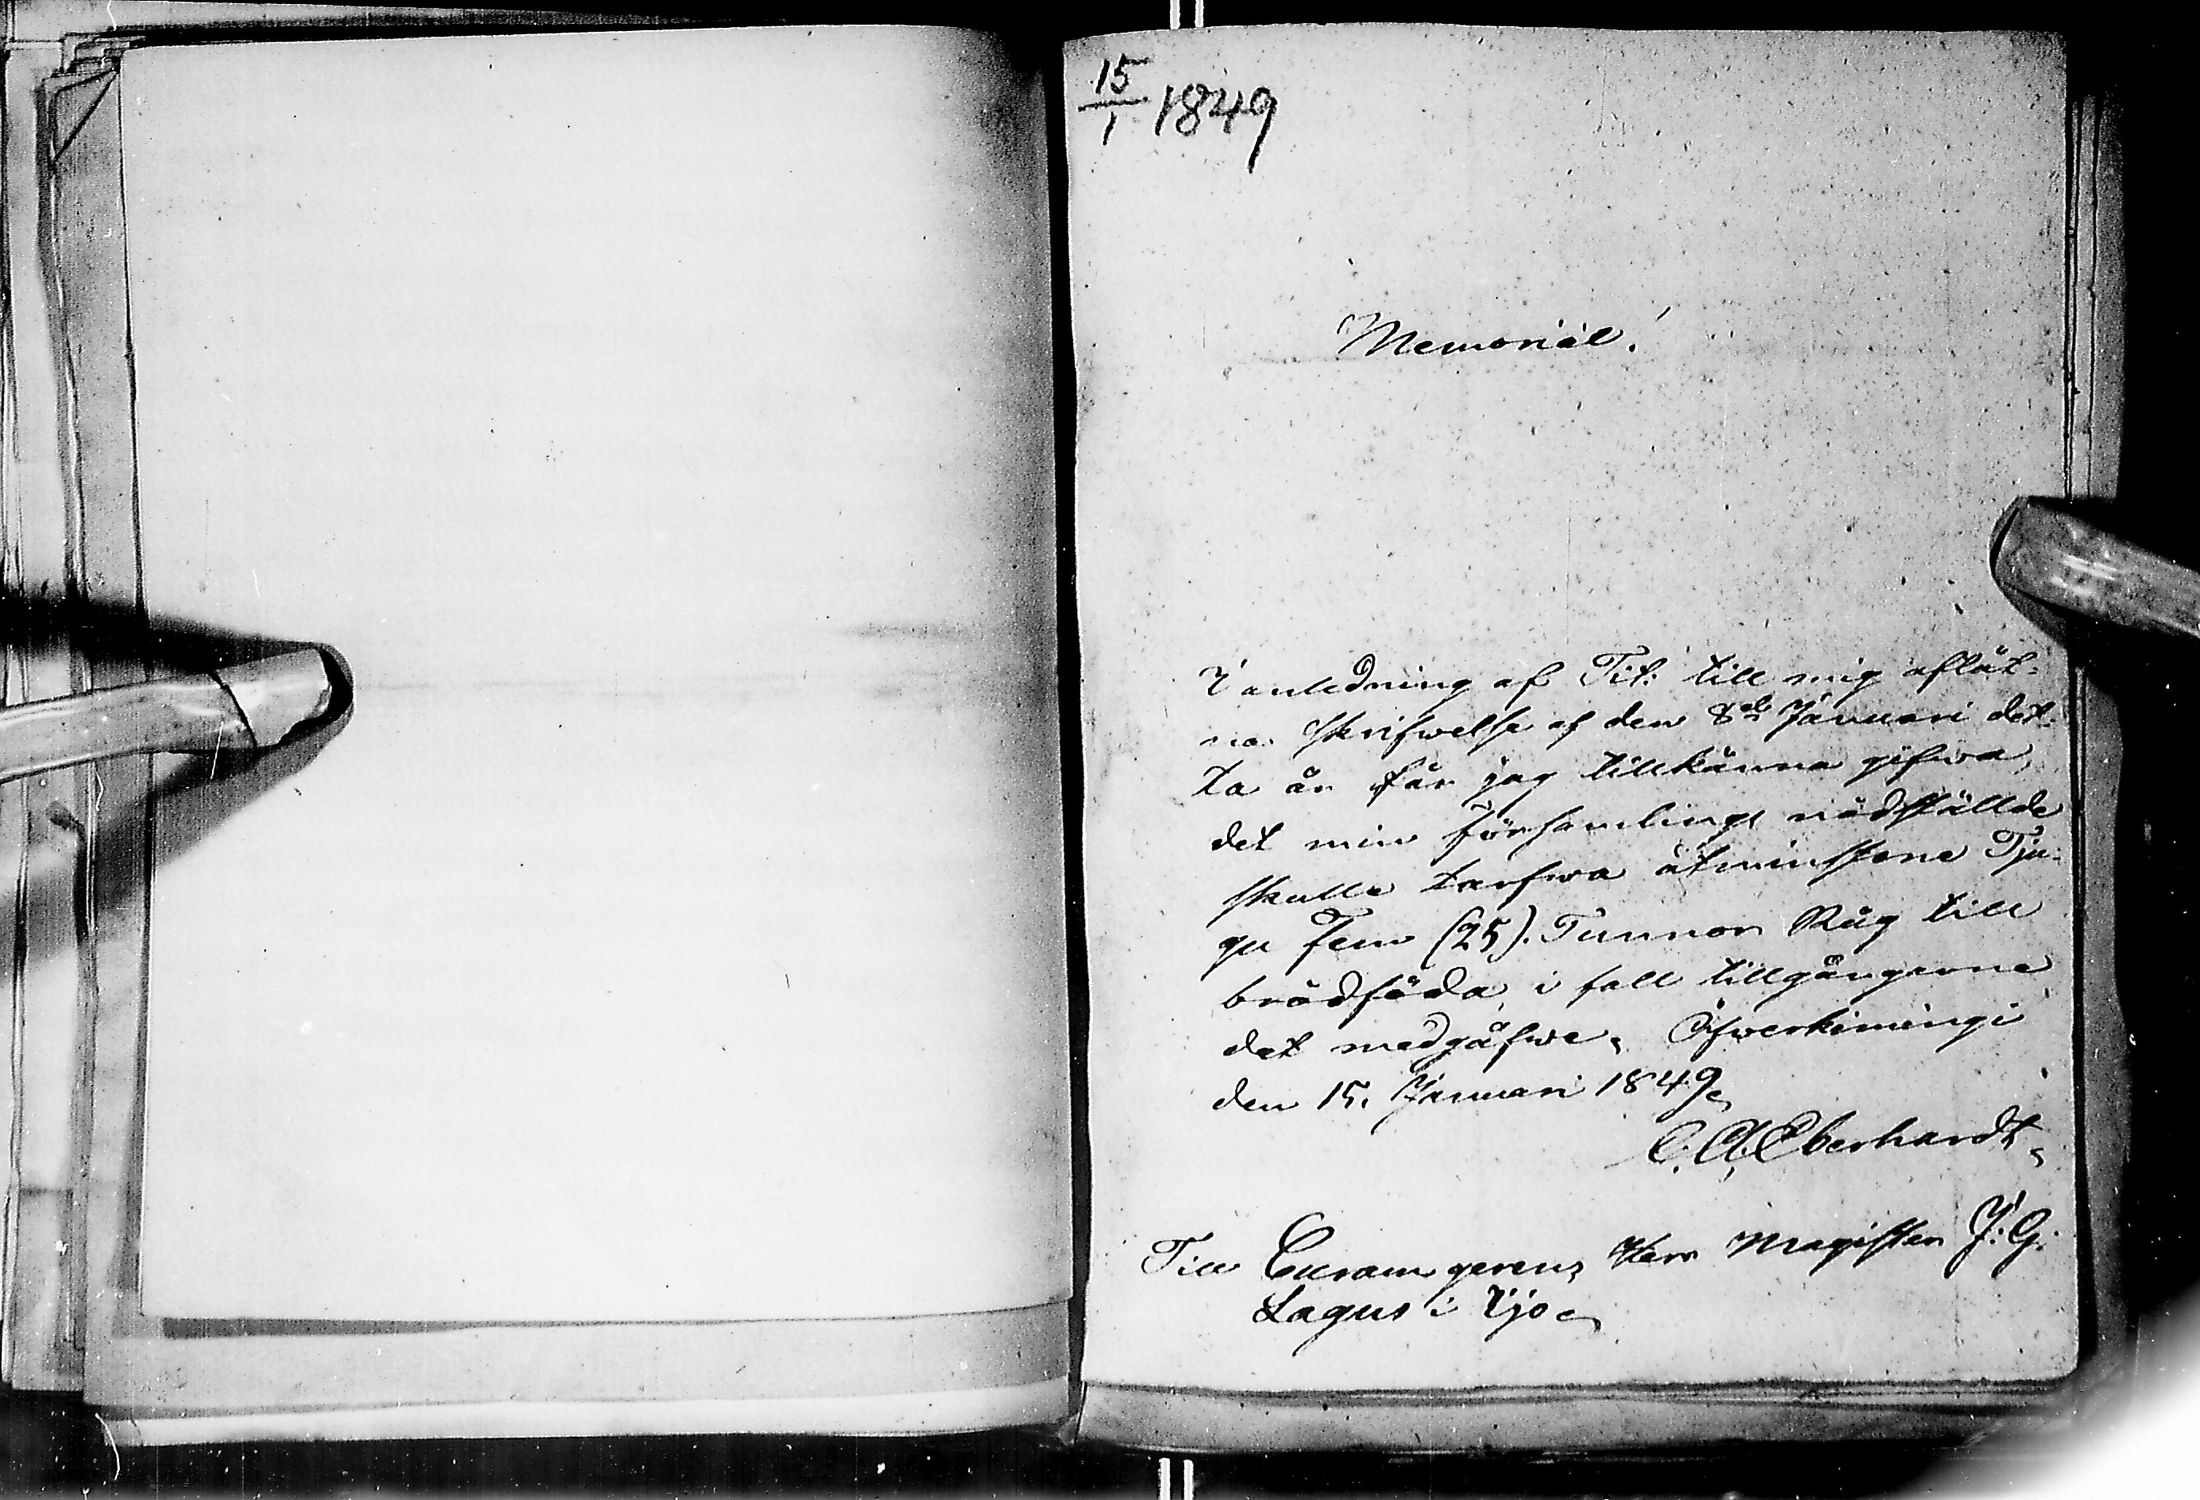 15/1 1849
Memorial.
I anledning af Tit: till mig aflåt-
na skrifwelse af den 8de Januari det-
ta år får jag tillkänna gifwa,
det min församlings nödställde
skulle tarfwa åtminstone Tju-
gu Fem (25). Tunnor Råg till
brödföda, i fall tillgångarne
det medgåfwe. Öfwerkimingi
den 15. Januari 1849.
C. A. Eberhardt.
Till Curam gerens, Herr Magister J: G:
Lagus i Ijo.